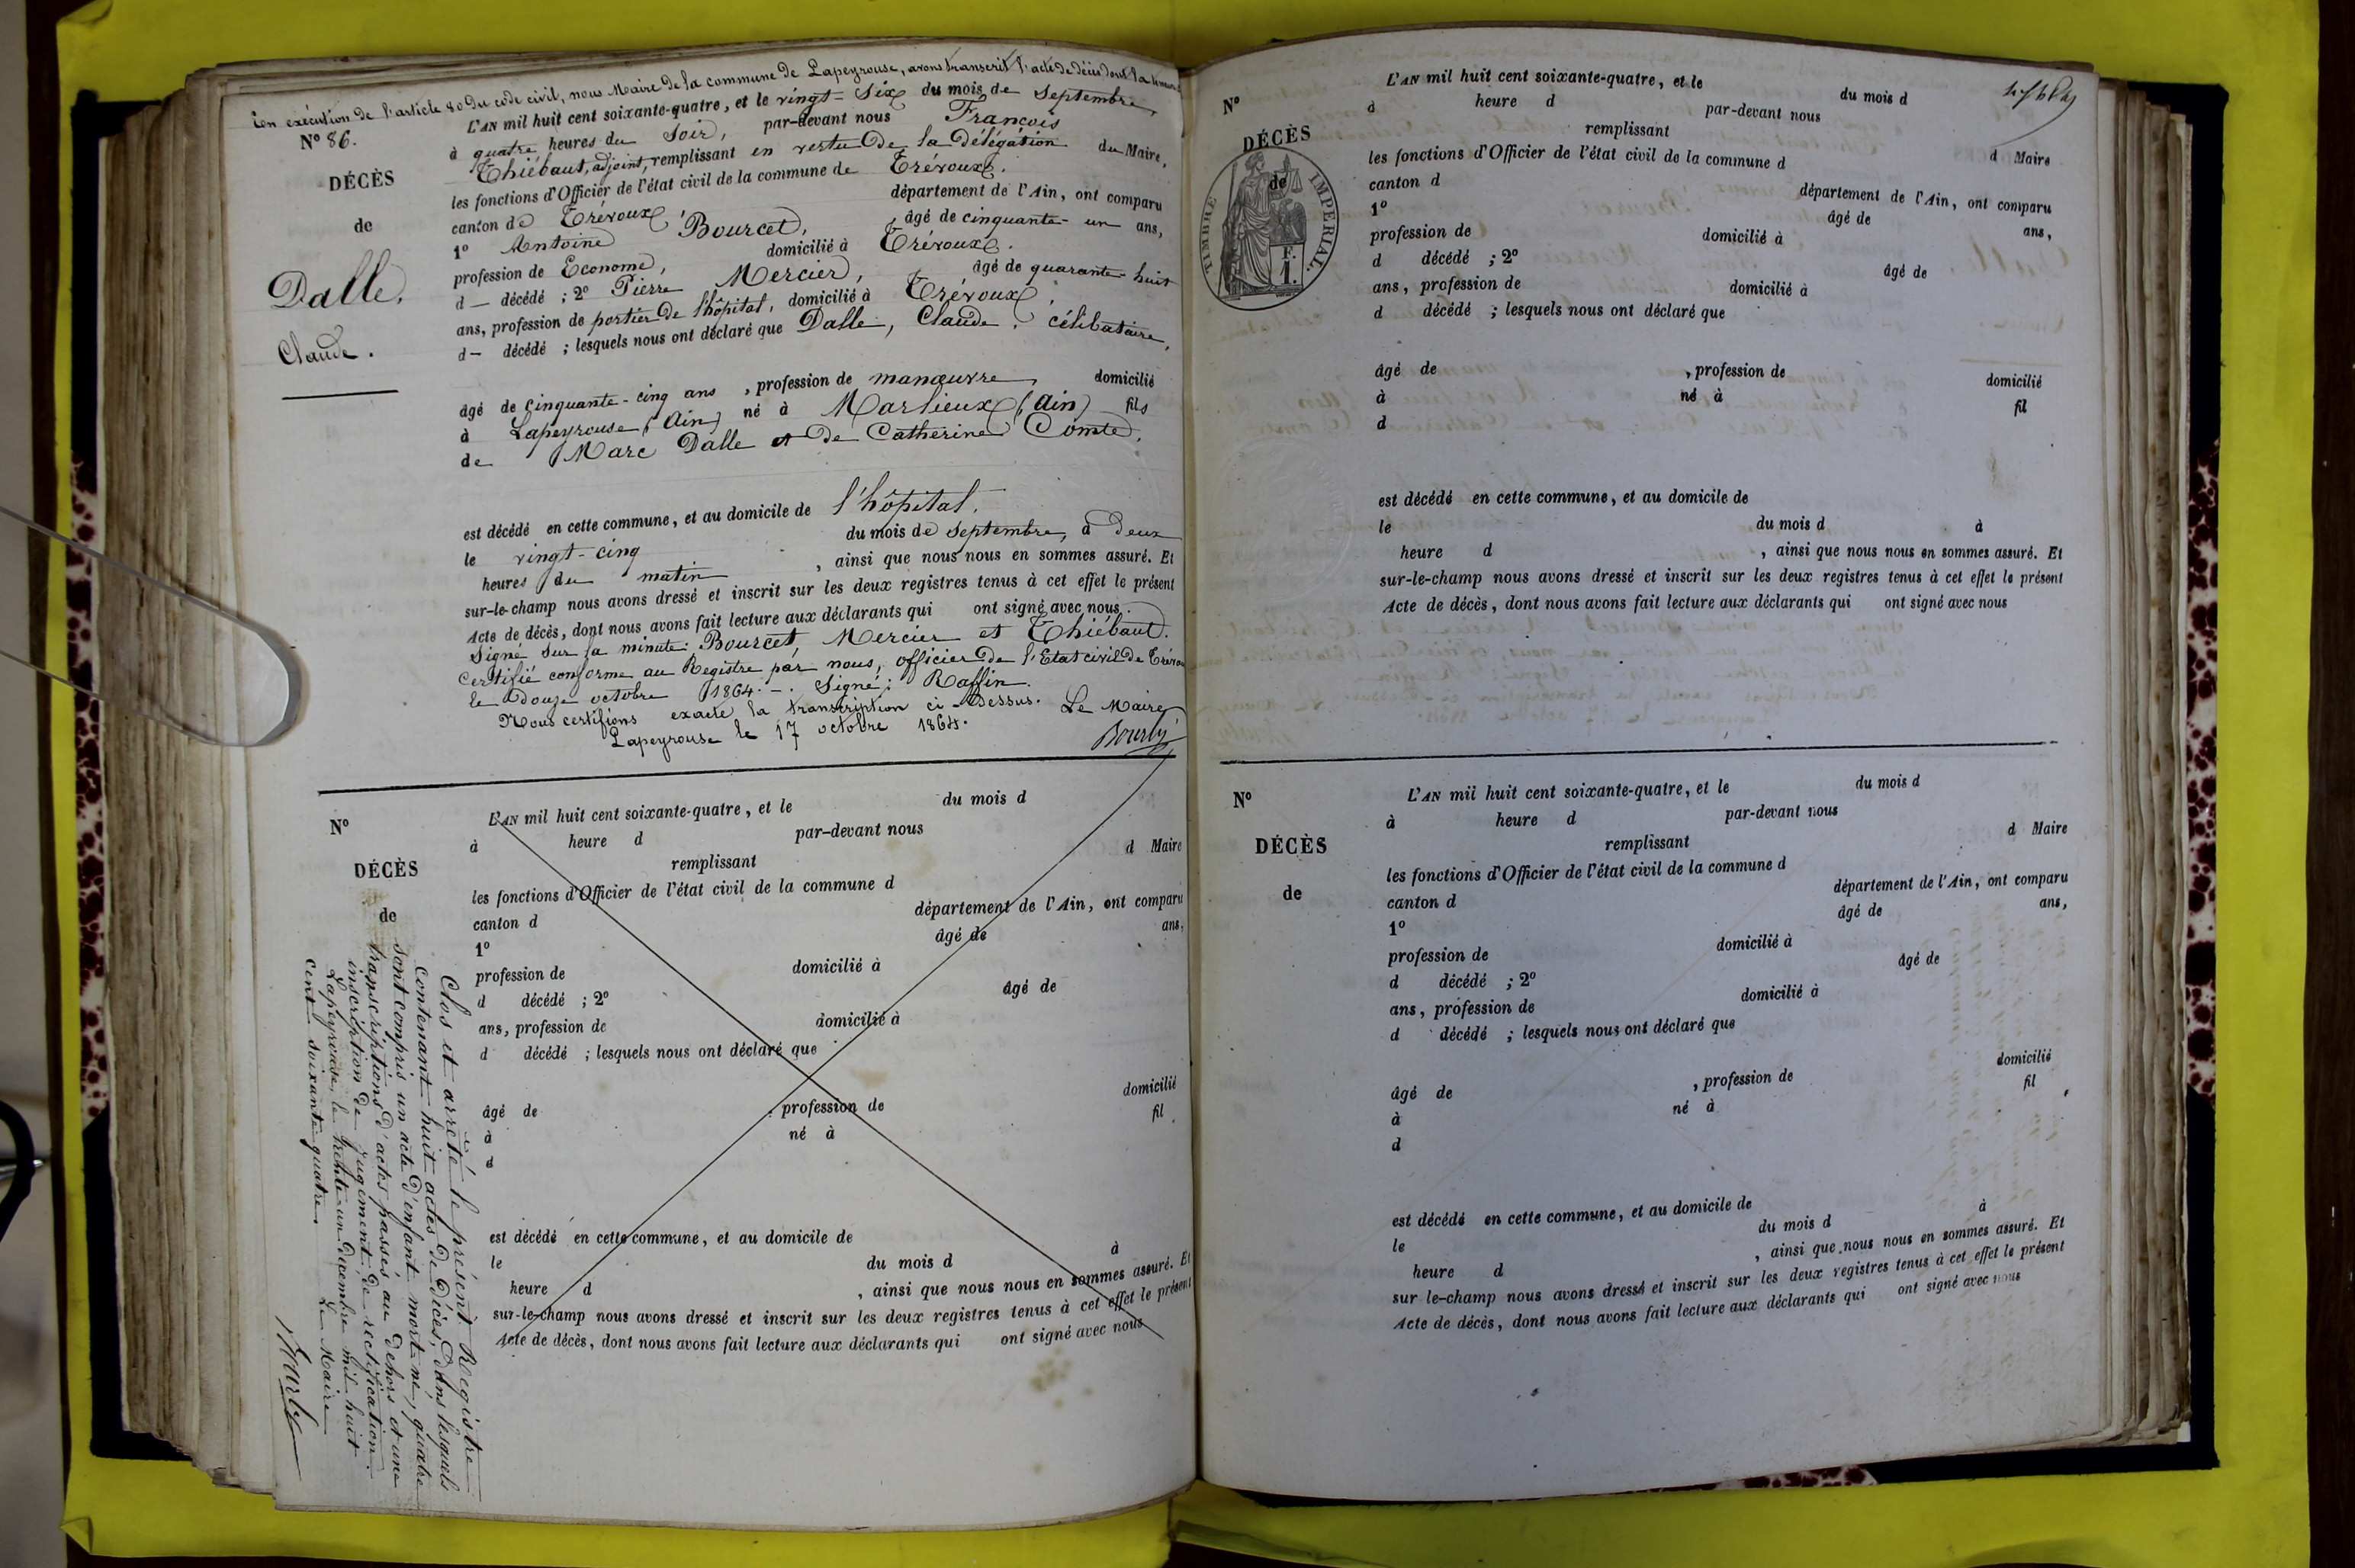 En exécution de l'article 80 du code civil, nous Maire de la commune de Lapeyrouse, avons transcrit l'acte de décès dont la teneur
N° 86.
DÉCÈS
de
Dalle,
Claude.
L'AN mil huit cent soixante-quatre, et le vingt-six du mois de Septembre,
à quatre heures du soir, par-devant nous François
Thiébaut, adjoint, remplissant en vertu de la délégation du Maire,
les fonctions d'Officier de l'état civil de la commune de Trévoux,
canton de Trévoux, département de l'Ain, ont comparu
1° Antoine Bourcet, âgé de cinquante-un ans,
profession de Econome, domicilié à Trévoux.
d— décédé ; 2° Pierre Mercier, âgé de quarante-huit
ans, profession de portier de l'hôpital, domicilié à Trévoux,
d— décédé ; lesquels nous ont déclaré que Dalle, Claude, célibataire,
âgé de cinquante-cinq ans, profession de manœuvre, domicilié
à Lapeyrouse (Ain) né à Marlieux (Ain) fils
de Marc Dalle et de Catherine Comte,
est décédé en cette commune, et au domicile de l'hôpital,
le vingt-cinq du mois de Septembre, à deux
heures du matin, ainsi que nous nous en sommes assuré. Et
sur-le-champ nous avons dressé et inscrit sur les deux registres tenus à cet effet le présent
Acte de décès, dont nous avons fait lecture aux déclarants qui ont signé avec nous.
Signé sur la minute: Bourcet, Mercier et Thiébaut.
Certifié conforme au Registre par nous, officier de l'Etat civil de Trévoux
le douze octobre 1864.-. Signé: Raffin.
Nous certifions exacte la transcription ci-dessus. Le Maire
Lapeyrouse le 17 octobre 1864.
N°
DÉCÈS
de
L'AN mil huit cent soixante-quatre, et le du mois d
à heure d par-devant nous
remplissant d Maire
les fonctions d'Officier de l'état civil de la commune d
canton d département de l'Ain, ont comparu
1° âgé de ans,
profession de domicilié à
d décédé ; 2° âgé de
ans, profession de domicilié à
d décédé ; lesquels nous ont déclaré que
âgé de , profession de domicilié
à né à fil
d
est décédé en cette commune, et au domicile de
le du mois d à
heure d , ainsi que nous nous en sommes assuré. Et
sur-le-champ nous avons dressé et inscrit sur les deux registres tenus à cet effet le présent
Acte de décès, dont nous avons fait lecture aux déclarants qui ont signé avec nous
Clos et arrêté le présent Registre
contenant huit actes de décès, dans lesquels
sont compris un acte d'enfant mort-né, quatre
transcriptions d'actes passés au dehors et une
inscription de jugement de rectification.
Lapeyrouse, le trente-un décembre mil huit
cent soixante-quatre. Le Maire
N°
DÉCÈS
de
TIMBRE IMPERIAL.
F.
1.
L'AN mil huit cent soixante-quatre, et le du mois d
à heure d par-devant nous
remplissant d Maire
les fonctions d'Officier de l'état civil de la commune d
canton d département de l'Ain, ont comparu
1° âgé de ans,
profession de domicilié à
d décédé ; 2° âgé de
ans, profession de domicilié à
d décédé ; lesquels nous ont déclaré que
âgé de , profession de domicilié
à né à fil
d
est décédé en cette commune, et au domicile de
le du mois d à
heure d , ainsi que nous nous en sommes assuré. Et
sur-le-champ nous avons dressé et inscrit sur les deux registres tenus à cet effet le présent
Acte de décès, dont nous avons fait lecture aux déclarants qui ont signé avec nous
N°
DÉCÈS
de
L'AN mil huit cent soixante-quatre, et le du mois d
à heure d par-devant nous
remplissant d Maire
les fonctions d'Officier de l'état civil de la commune d
canton d département de l'Ain, ont comparu
1° âgé de ans,
profession de domicilié à
d décédé ; 2° âgé de
ans, profession de domicilié à
d décédé ; lesquels nous ont déclaré que
âgé de , profession de domicilié
à né à fil
d
est décédé en cette commune, et au domicile de
le du mois d à
heure d , ainsi que nous nous en sommes assuré. Et
sur le-champ nous avons dressé et inscrit sur les deux registres tenus à cet effet le présent
Acte de décès, dont nous avons fait lecture aux déclarants qui ont signé avec nous